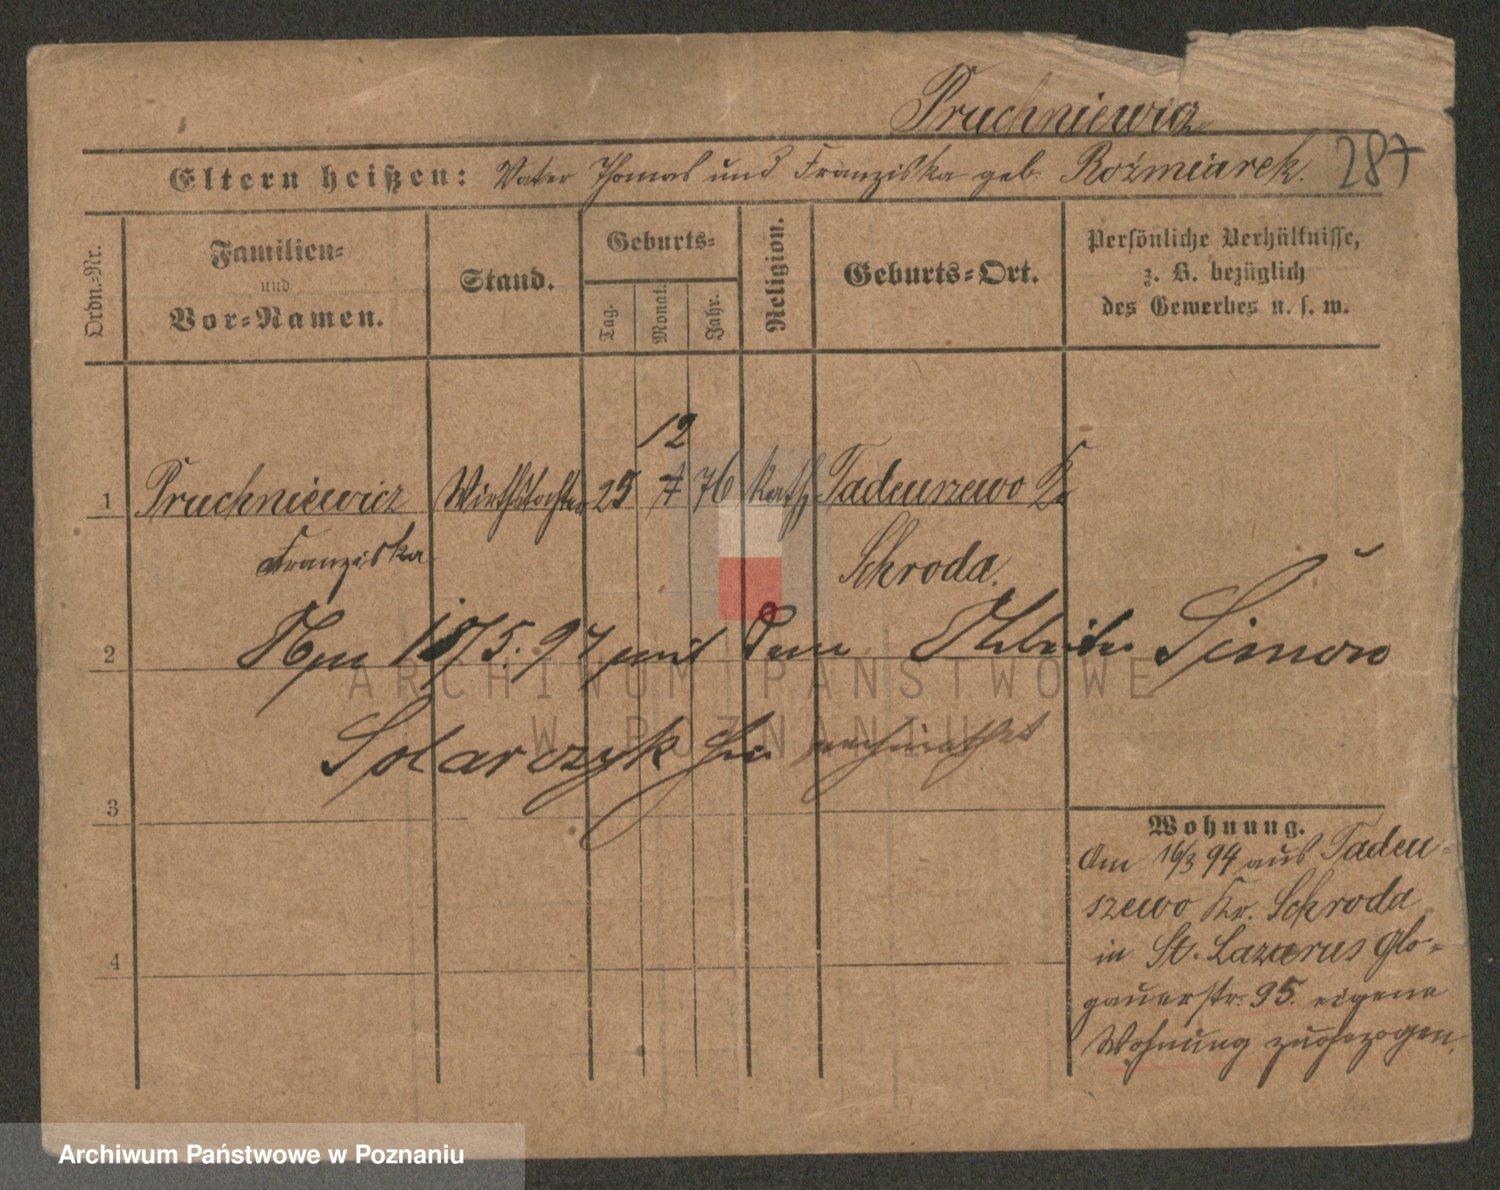 Pruchniewicz
Eltern heißen: Vater Thomas und Franziska geb. Rożmiarek. 287
Ordn.-Nr.
Familien-
und
Vor-Namen.
Stand.
Geburts-
Tag.
Monat.
Jahr.
Religion.
Geburts-Ort.
Persönliche Verhältnisse,
z. B. bezüglich
des Gewerbes u. s. w.
12
1 Pruchniewicz Wirthstochter 25 7 76 kath Tadeuszewo Kr
Franziska Schroda.
2 Am 18/5. 97 mit dem Arbeiter Simon
Solarczyk hier verheirathet
3
4
Wohnung.
Am 16/3 94 aus Tadeu-
szewo Kr. Schroda
in St. Lazarus Glo-
gauerstr. 95. eigene
Wohnung zugezogen.
ARCHIWUM PAŃSTWOWE
W POZNANIU
Archiwum Państwowe w Poznaniu